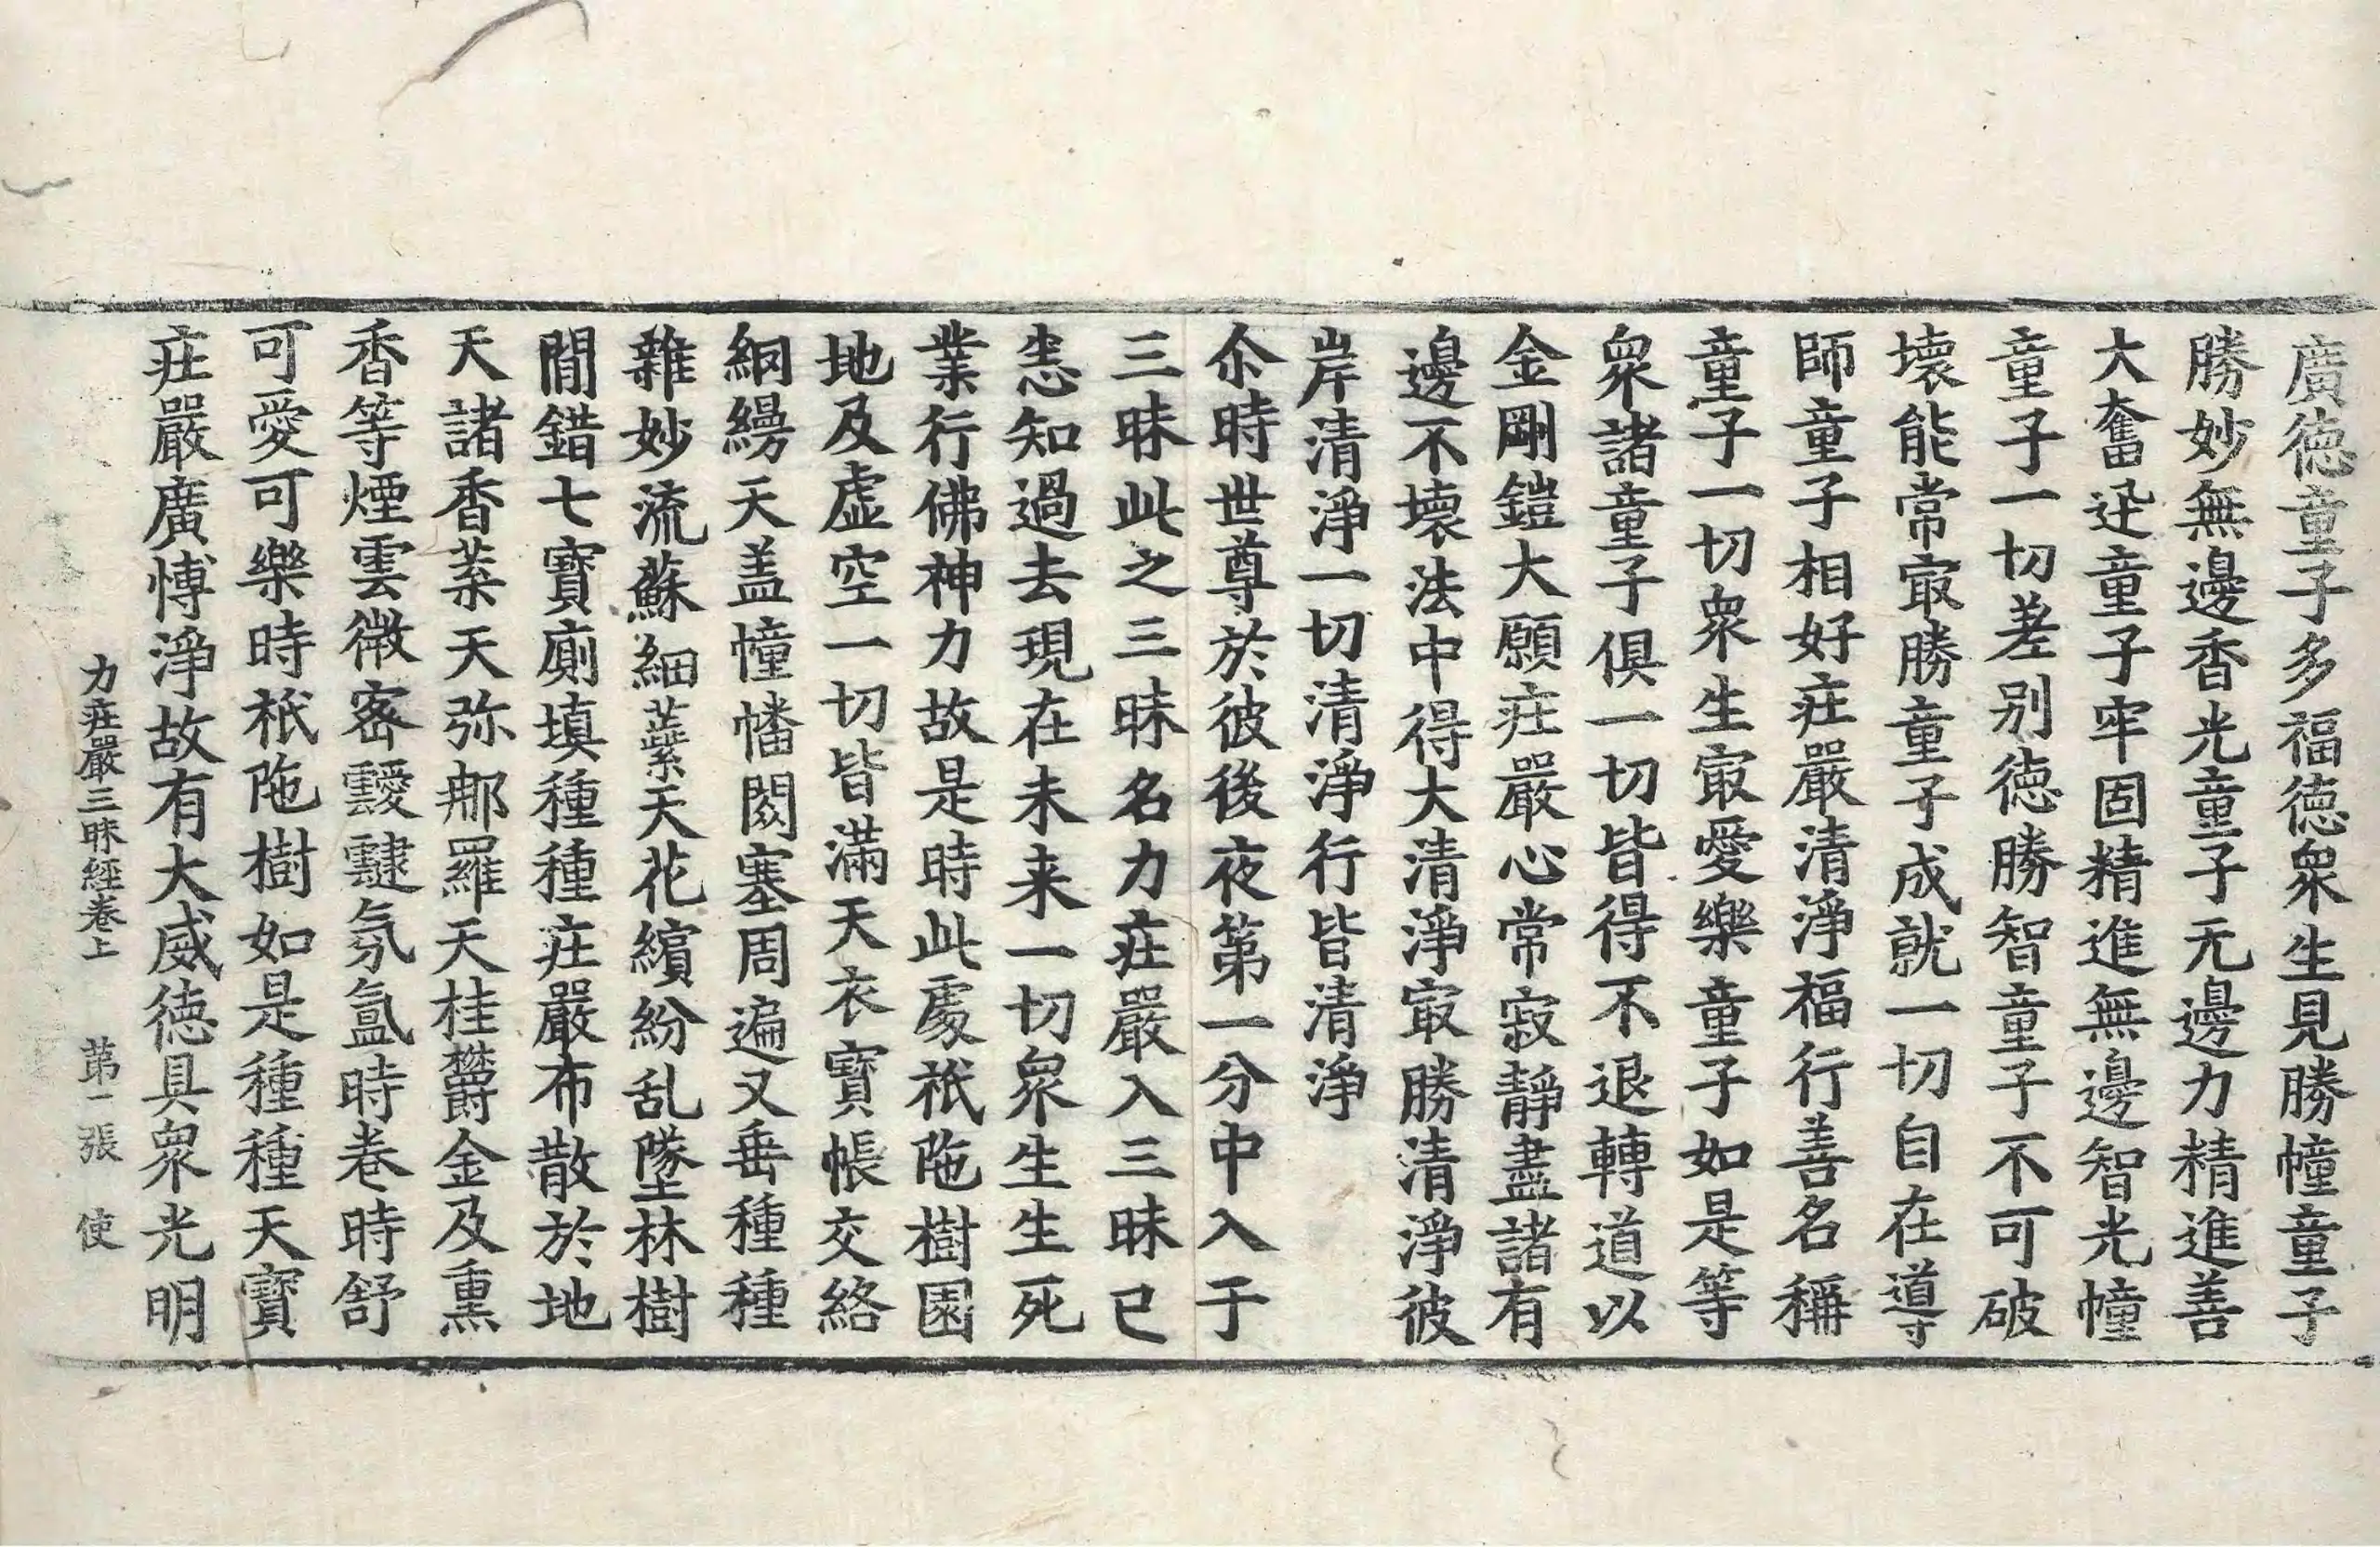 廣徳童子多福徳衆生見勝幢童子
勝妙無邊香光童子无邊力精進善
大奮迅童子牢固精進無邊智光幢
童子一切差别徳勝智童子不可破
壞能常㝡勝童子成就一切自在導
師童子相好㽵嚴清淨福行善名稱
童子一切衆生㝡愛樂童子如是等
衆諸童子俱一切皆得不退轉道以
金剛鎧大願㽵嚴心常寂靜盡諸有
邊不壞法中得大清淨㝡勝清淨彼
岸清淨一切清淨行皆清淨
尒時世尊於彼後夜第一分中入于
三昧此之三昧名力㽵嚴入三昧已
悉知過去現在未来一切衆生生死
業行佛神力故是時此處祇陁樹園
地及虚空一切皆滿天衣寳帳交絡
網縵天盖幢幡閦塞周遍又垂種種
雜妙流蘇細蘂天花繽紛乱墜林樹
間錯七寳廁填種種㽵嚴布散於地
天諸香葉天弥那羅天桂欝金及熏
香等煙雲微宻靉靆氛氳時卷時舒
可愛可樂時祇陁樹如是種種天寳
㽵嚴廣愽淨故有大威徳具衆光明
力㽵嚴三昧經卷上 苐一張 使